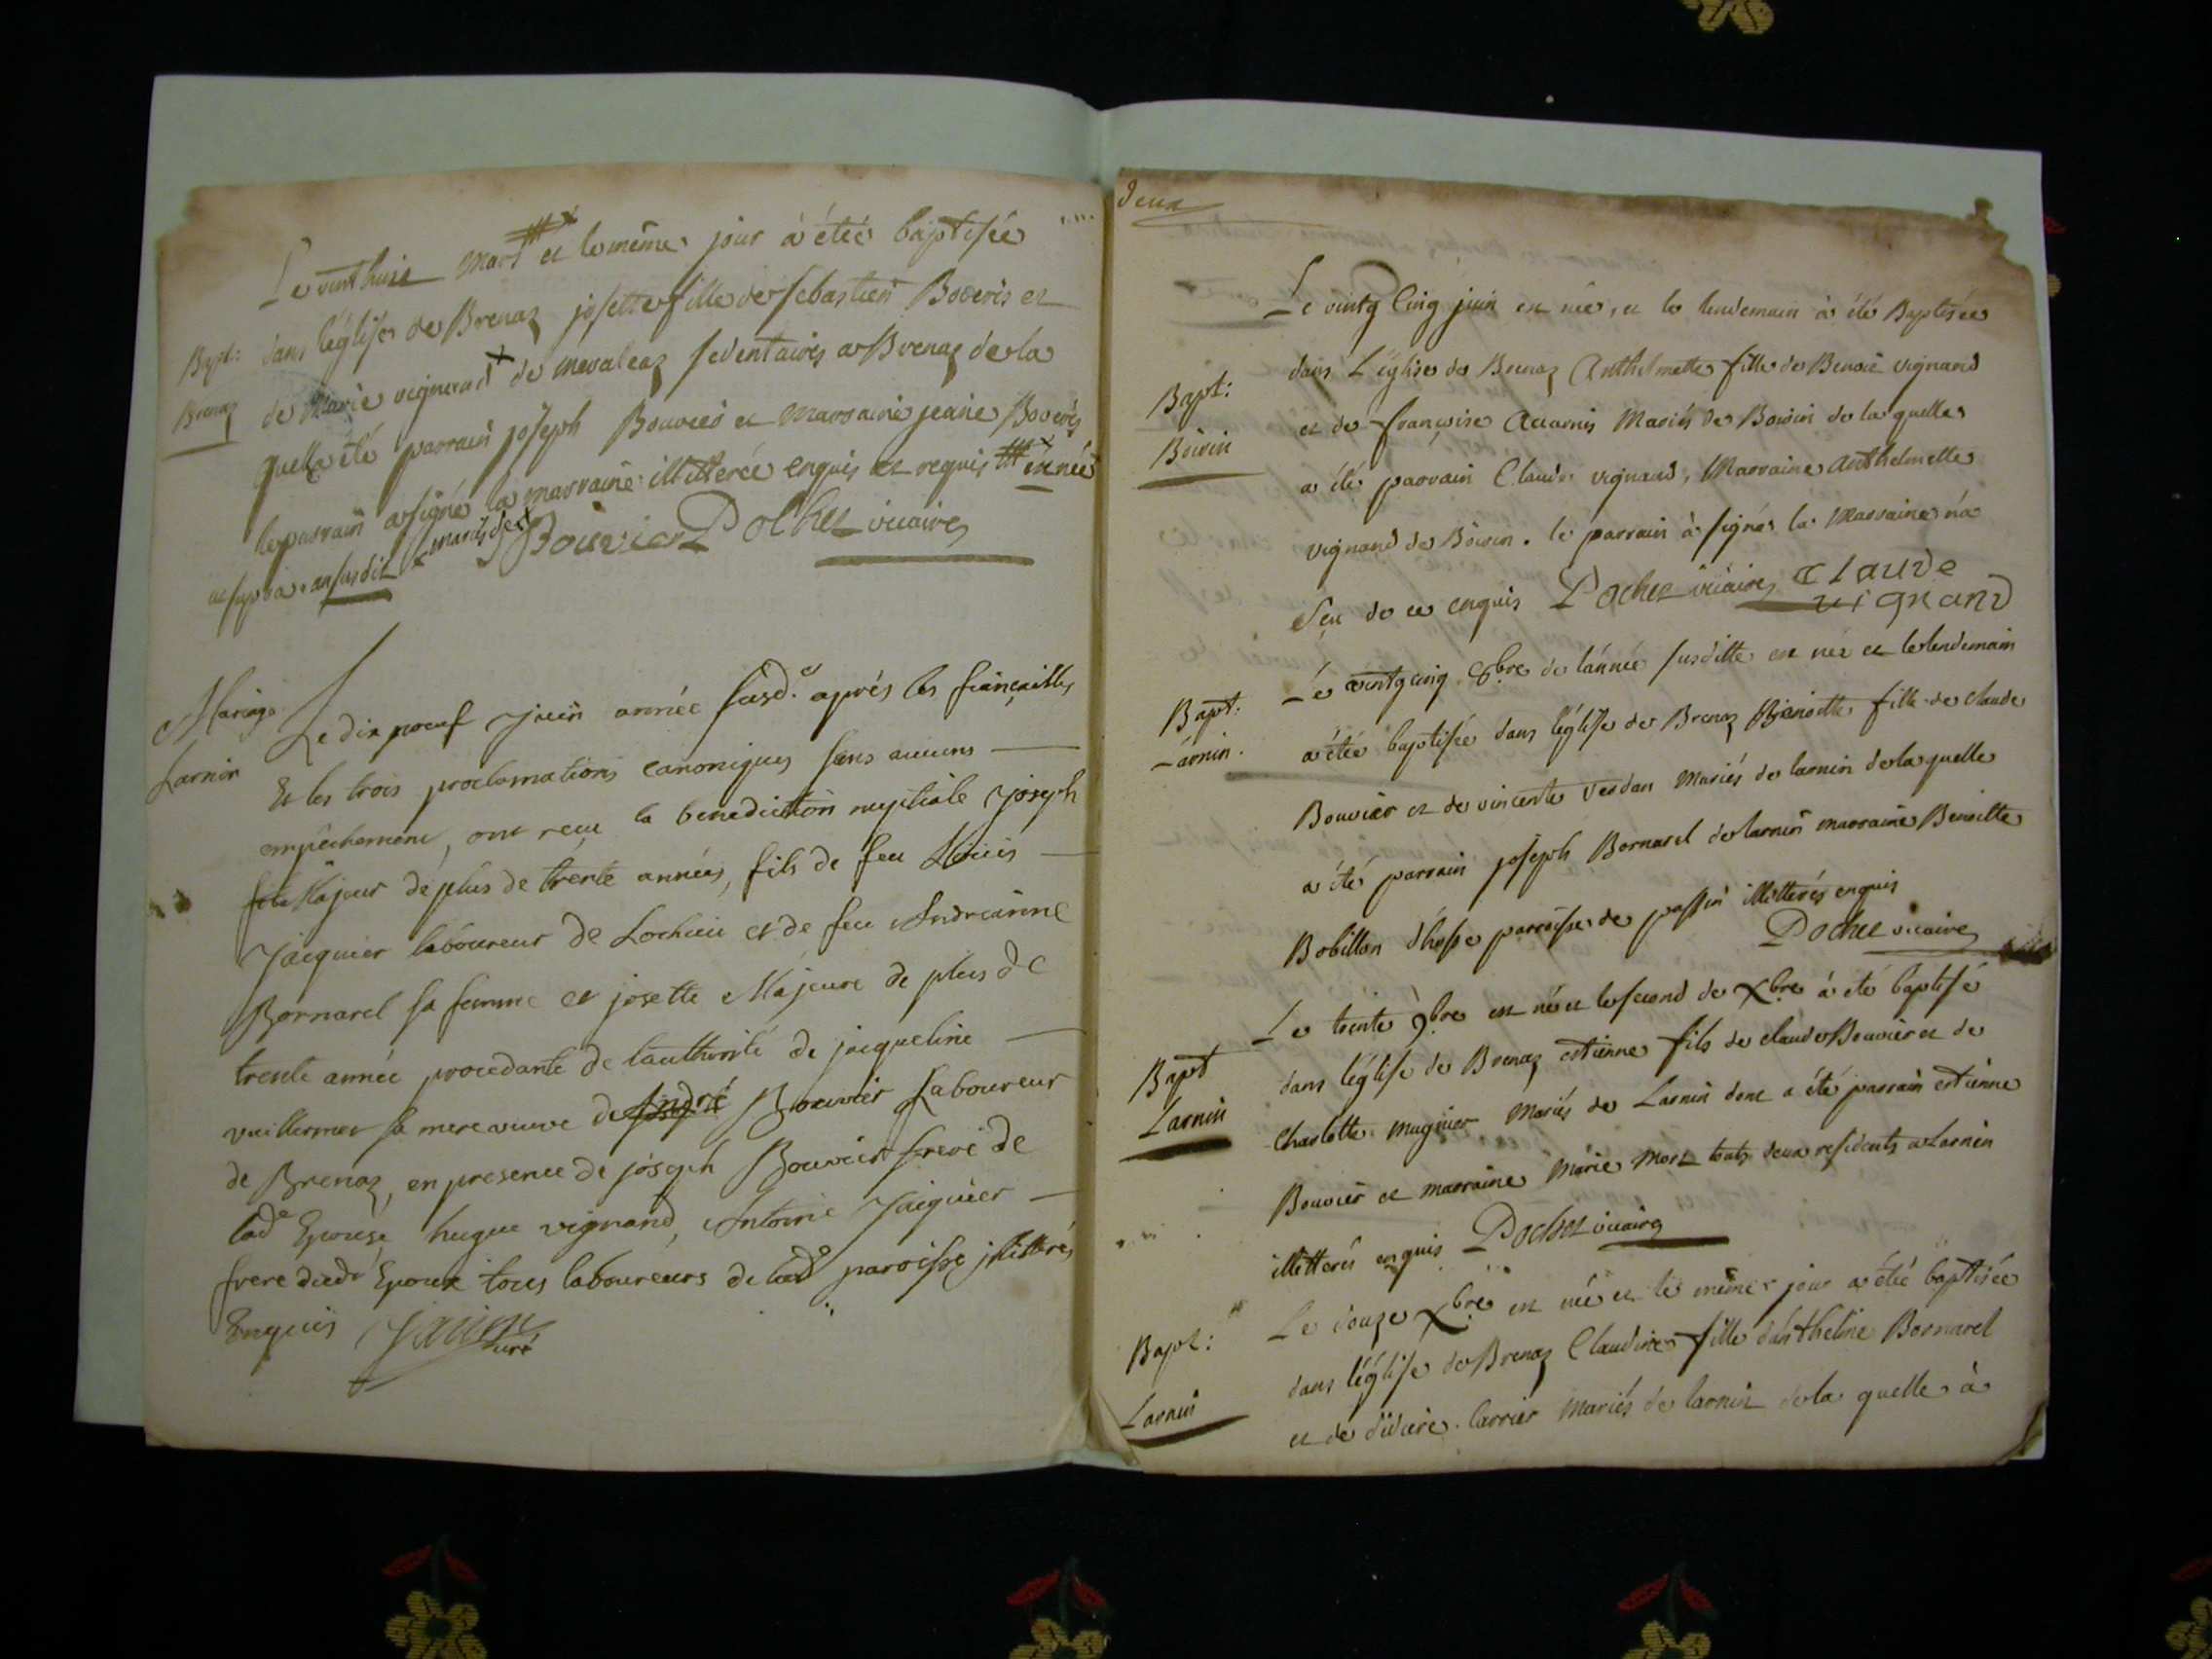 Bapt:
Brenaz
Le vinthuit mars et le même jour à étéé baptisée
dans léglise de Brenaz josette fille de sebastien Boveris et
de Marie vignerad de mevaleaz sedentaires a Brenaz de la
quelle été parrain joseph Bouvier et marraine jeane Boveris
le parrain a signé la marraine illitterée enquis et requis est née
an susdit mariés de
Bouvier Pochet vicaire
Mariage
Larnin
Le dix noeuf juin année susd.e après les fiançailles
Et les trois proclamations canoniques sans aucuns
empêchement, ont reçu la benediction nuptiale joseph
Majeur de plus de trente années, fils de feu Louis
Jaiquier laboureur de Lochieu et de feu Andrianne
Bornarel sa femme et josette Majeure de plus de
trente année procedante de lauthorité de jacqueline
vuillermet sa mere veuve de André Bouvier Laboureur
de Brenaz, en presence de joseph Bouvier frere de
lad.e Epouse, hugue vignand, Antoine Jaiquier
frere dud.t Epoux tous laboureurs de lad.e paroisse jllitérés
Enquis Javin curé
Deux
Bapt:
Boirin
Le vintg cinq juin est née, et le lendemain à été Baptisée
dans L'église de Brenaz Anthelmette fille de Benoit vignand
et de françoise Avarnis Mariés de Boirin de la quelle
a été parrain Claude vignand, Marraine Anthelmette
vignand de Boirin. le parrain à signé la Marraine n'a
sçu de ce enquis Pochet vicaire Claude
vignand
Bapt:
Larnin.
Le vintgcinq 8bre de lánnée susditte est née et le lendemain
a étée baptisée dans léglise de Brenaz Benoitte fille de claude
Bouvier et de vincente Verdan Mariés de larnin de la quelle
a été parrain joseph Bornarel de larnin marraine Benoitte
Bobillon d'hosse parroisse de passin illitterés enquis
Pochet vicaire
Bapt
Larnin
Le trente 9bre est né et le second de Xbre à été baptisé
dans léglise de Brenaz estienne fils de claude Bouvier et de
Charlotte mugnier Mariés de Larnin dont a été parrain estienne
Bouvier et marraine Marie Mort touts deux residents a Larnin
illitterés enquis Pochet vicaire
Bapt:
Larnin
Le douze Xbre est née et le même jour a étéé baptisée
dans léglise de Brenaz Claudine fille d'antheline Bornarel
et de didiere Carrier Mariés de larnin de la quelle à